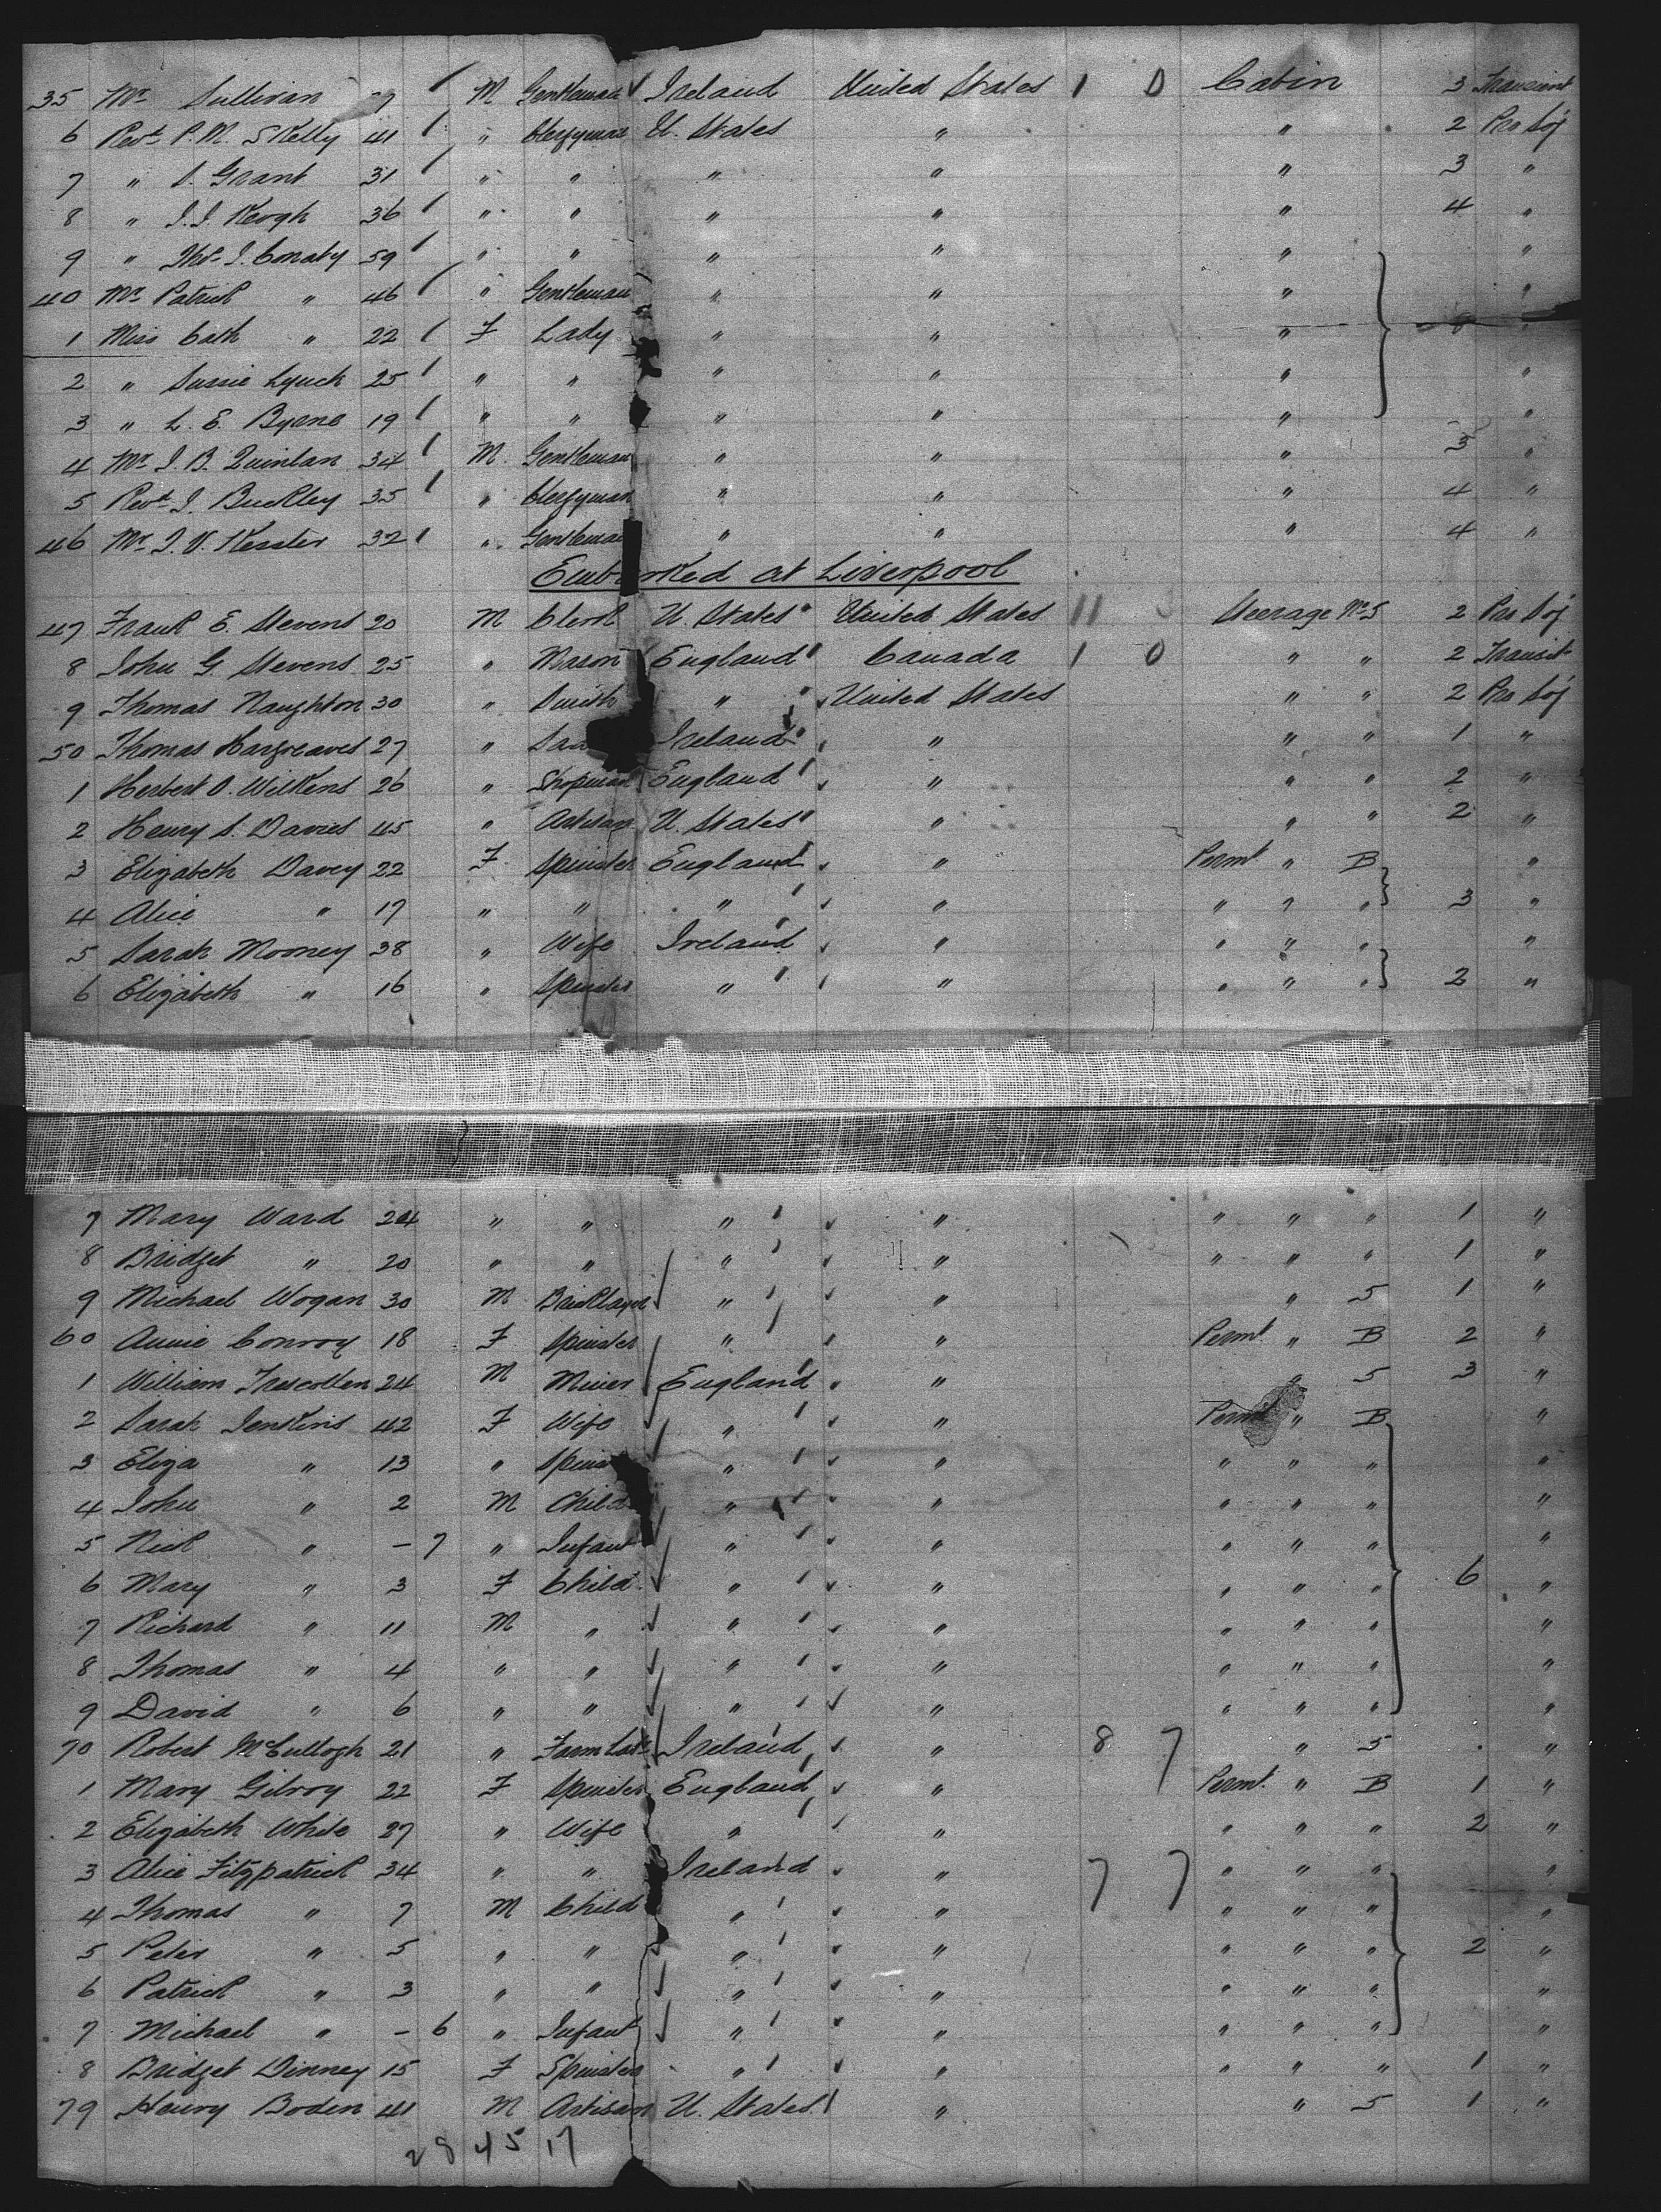 35 Mr Sullivan M Gentleman Ireland United States 1 0 Cabin 3 Transient
6 Revd P. M. Skelly 41 " Clergyman U. States " " 2 Pro Soj
7 " S. Grant 31 " " " " " 3 "
8 " J. J. Keogh 36 " " " " " 4 "
9 " Thos J. Conaty 59 " " " " " "
40 Mr Patrick " 46 " Gentleman " " " "
1 Miss Cath " 22 F Lady " " "
2 " Sussie Lynch 25 " " " " " "
3 " L. E. Byrne 19 " " " " " "
4 Mr J. B. Quinlan 34 M. Gentleman " " " 3 "
5 Revd J. Buckley 35 " Clergyman " " " 4 "
46 Mr J. V. Kessler 32 " Gentleman " " " 4 "
Embarked at Liverpool
47 Frank E. Stevens 20 M Clerk U. States United States 11 Steerage No 5 2 Pro Soj
8 John G. Stevens 25 " Mason England Canada 1 0 " " 2 Transit
9 Thomas Naughton 30 " Smith " United States " " 2 Pro Soj
50 Thomas Hargreaves 27 " Ireland " " " 1 "
1 Herbert O. Wilkens 26 " Shopman England " " " 2 "
2 Henry S. Davies 45 " Artisan U. States " " " 2 "
3 Elizabeth Davey 22 F Spinster England " Permt " B "
4 Alice " 17 " " " " " " " 3 "
5 Sarah Mooney 38 " Wife Ireland " " " " "
6 Elizabeth " 16 " Spinster " " " " " 2 "
7 Mary Ward 24 " " " " " " " 1 "
8 Bridget " 20 " " " " " " " 1 "
9 Michael Wogan 30 M Bricklayer " " " 5 1 "
60 Annie Conroy 18 F Spinster " " Permt " B 2 "
1 William Trescotten 24 M Miner England " " 5 3 "
2 Sarah Jenkins 42 F Wife " " Permt " B "
3 Eliza " 13 " " " " " " "
4 John " 2 M Child " " " " " "
5 Nick " - 7 " Infant " " " " " "
6 Mary " 3 F Child " " " " " 6 "
7 Richard " 11 M " " " " " " "
8 Thomas " 4 " " " " " " " "
9 David " 6 " " " " " " " "
70 Robert McCullogh 21 " Farm Labr Ireland " 8 7 " 5 "
1 Mary Gilroy 22 F Spinster England " Permt. " B 1 "
2 Elizabeth White 27 " Wife " " " " " 2 "
3 Alice Fitzpatrick 34 " " Ireland " 7 7 " " " "
4 Thomas " 7 M Child " " " " " "
5 Peter " 5 " " " " " " " 2 "
6 Patrick " 3 " " " " " " " "
7 Michael " - 6 " Infant " " " " " "
8 Bridget Dinney 15 F Spinster " " " " " 1 "
79 Henry Boden 41 M Artisan U. States " " 5 1 "
28 45 17